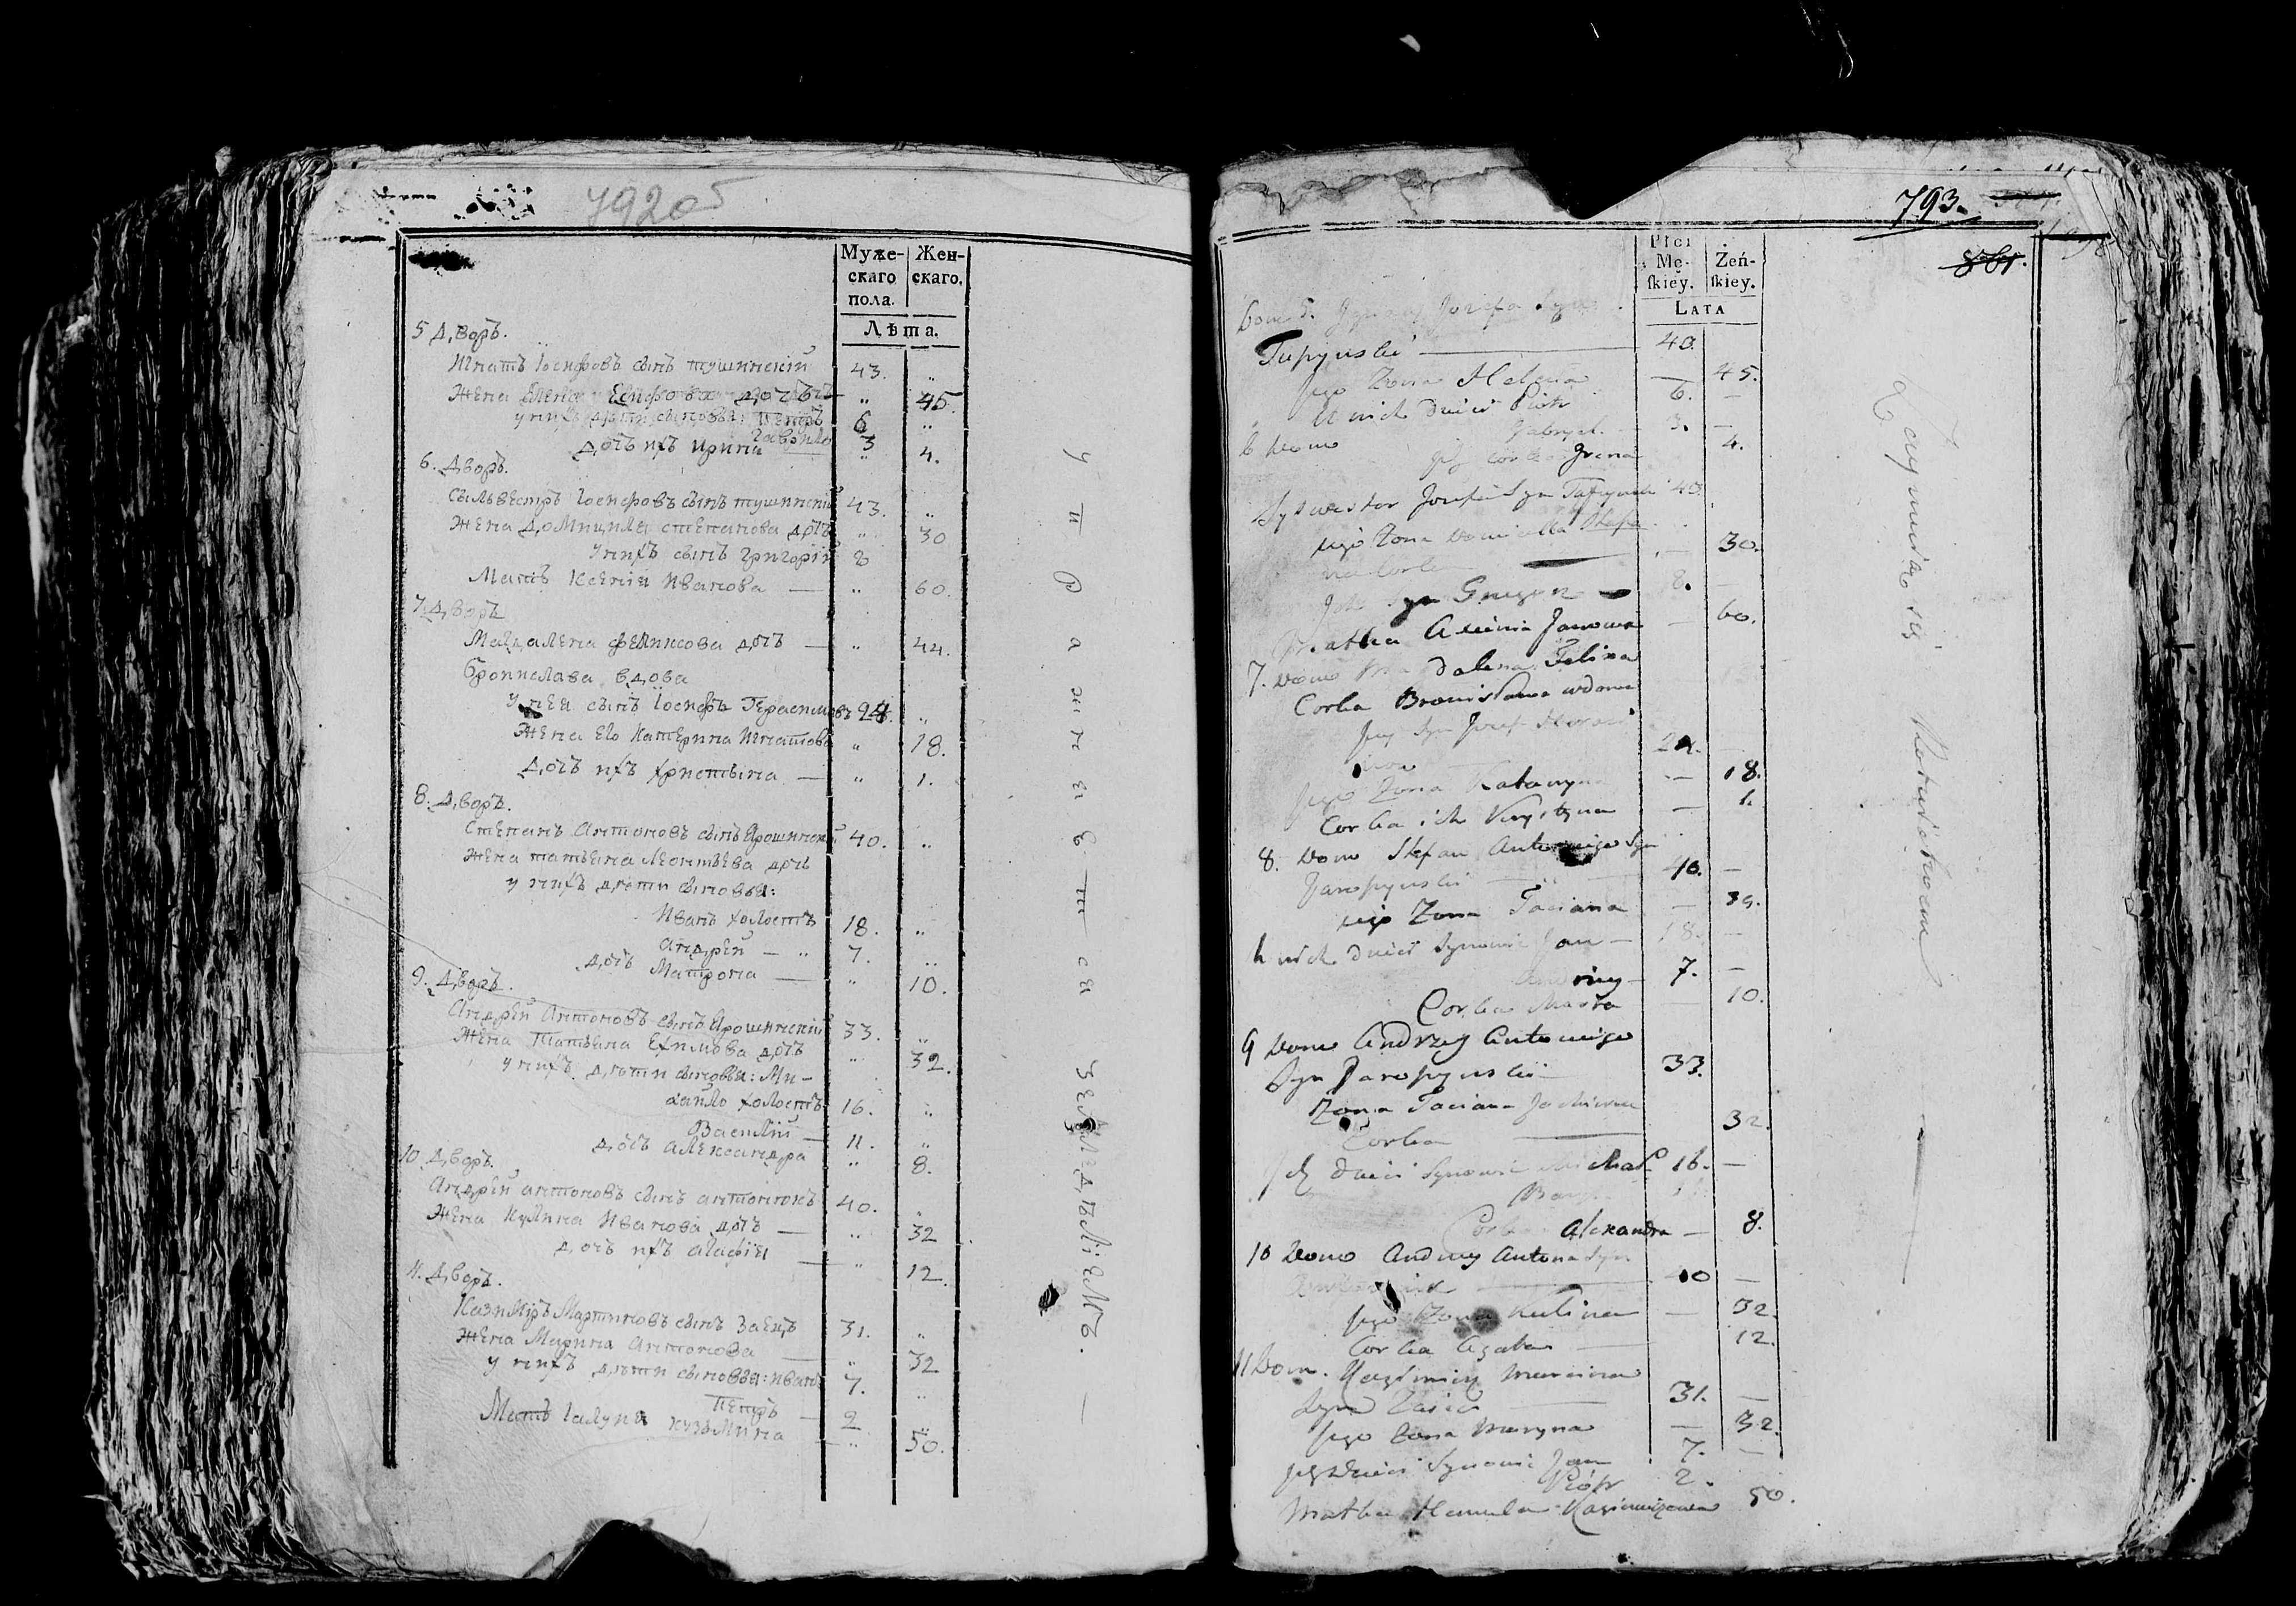 792об
Муже-
скаго
пола.
Жен-
скаго.
Лѣта.
5 Дворъ.
Игнатъ Іосифовъ сынъ тушинскій 43. „
Жена Елена Есифова дочь „ 45.
у нихъ дѣти сыновья: Петръ 6 „
Гаврило 3
дочь ихъ Ирина „ 4.
6. Дворъ.
Сильвестръ Іосифовъ сынъ тушинскій 43. „
Жена Домицила степанова дочь „ 30
У нихъ сынъ Григорій 8
Мать Ксенія Иванова — „ 60.
7. Дворъ
Магдалена феликсова дочь — „ 44.
Брониславa вдова
У нея сынъ Іосифъ Герасимовъ 24. „
Жена Его Катерина Игнатова „ 18.
дочь ихъ христина — „ 1.
8. Дворъ.
Степанъ Антоновъ сынъ Ярошинскій 40. „
Жена татьяна Леонтьева дочь
у нихъ дѣти сыновья:
Иванъ холостъ 18. „
Андрей — „ 7. „
дочь Матрона — „ 10.
9. Дворъ.
Андрей Антоновъ сынъ Ярошинскій 33. „
Жена Татьяна Ехимова дочь „ 32.
у нихъ дѣти сыновья: Ми-
хайло холостъ 16. „
Василій — 11. „
дочь александра „ 8.
10. Дворъ.
Андрей антоновъ сынъ антонюкъ 40. „
Жена Кулина Иванова дочь — „ 32
дочь ихъ агафія — „ 12.
11. Дворъ.
Казимиръ Мартиновъ сынъ Заецъ 31. „
Жена Марина Антонова — „ 32
у нихъ дѣти сыновья: иванъ 7. „
Петръ — 2 „
Мать Кузьмина — „ 50.
упражняется земледѣліемъ. —
793.
861.
Płci
Mę-
skiey.
Żeń-
skiey.
LATA
Dom 5. Jgnacy Jozefa Syn
Tupynski — 40.
jego Zona Helena — 45.
U nich dzieci Piotr 6. —
Gabryel. — 3. —
6 Dom
ich Corka Jrena 4.
Sylwester Jozefa Syn 43.
jego Zona Domicella Stefa
na Corka — 30.
Jch Syn Gregor 8. —
Matka Axenia Janowa — 60.
7. Dom Magdalena Felixa
Corka Bronisława wdowa
jey Syn Jozef
24. —
jego Zona Katarzyna — 18.
Corka ich Krystyna — 1.
8. Dom Stefan Antoniego Syn
Jaropynski — 40. —
jego Zona Taciana —
U nich dzieci Synowie Jan — 18. —
Andrzey — 7. —
Corka — 10.
9 Dom Andrzey Antoniego
Syn Jaropynski — 33.
Zona Taciana Jachimowa
Corka — 32.
Jch dzieci Synowie Michał 16. —
Corka Alexandra — 8.
10 Dom Andrzey Antona Syn
— 40 —
jego Zona Kulina — 32.
Corka Agata — 12.
11 Dom. Kazimierz Marcina
Syn Zaiac — 31. —
jego Zona Maryna — 32.
Jch dzieci Synowie Jan 7. —
Piótr 2.
Matka Hanula Kazimierzowa 50.
Zaymuią się Rolnictwem —